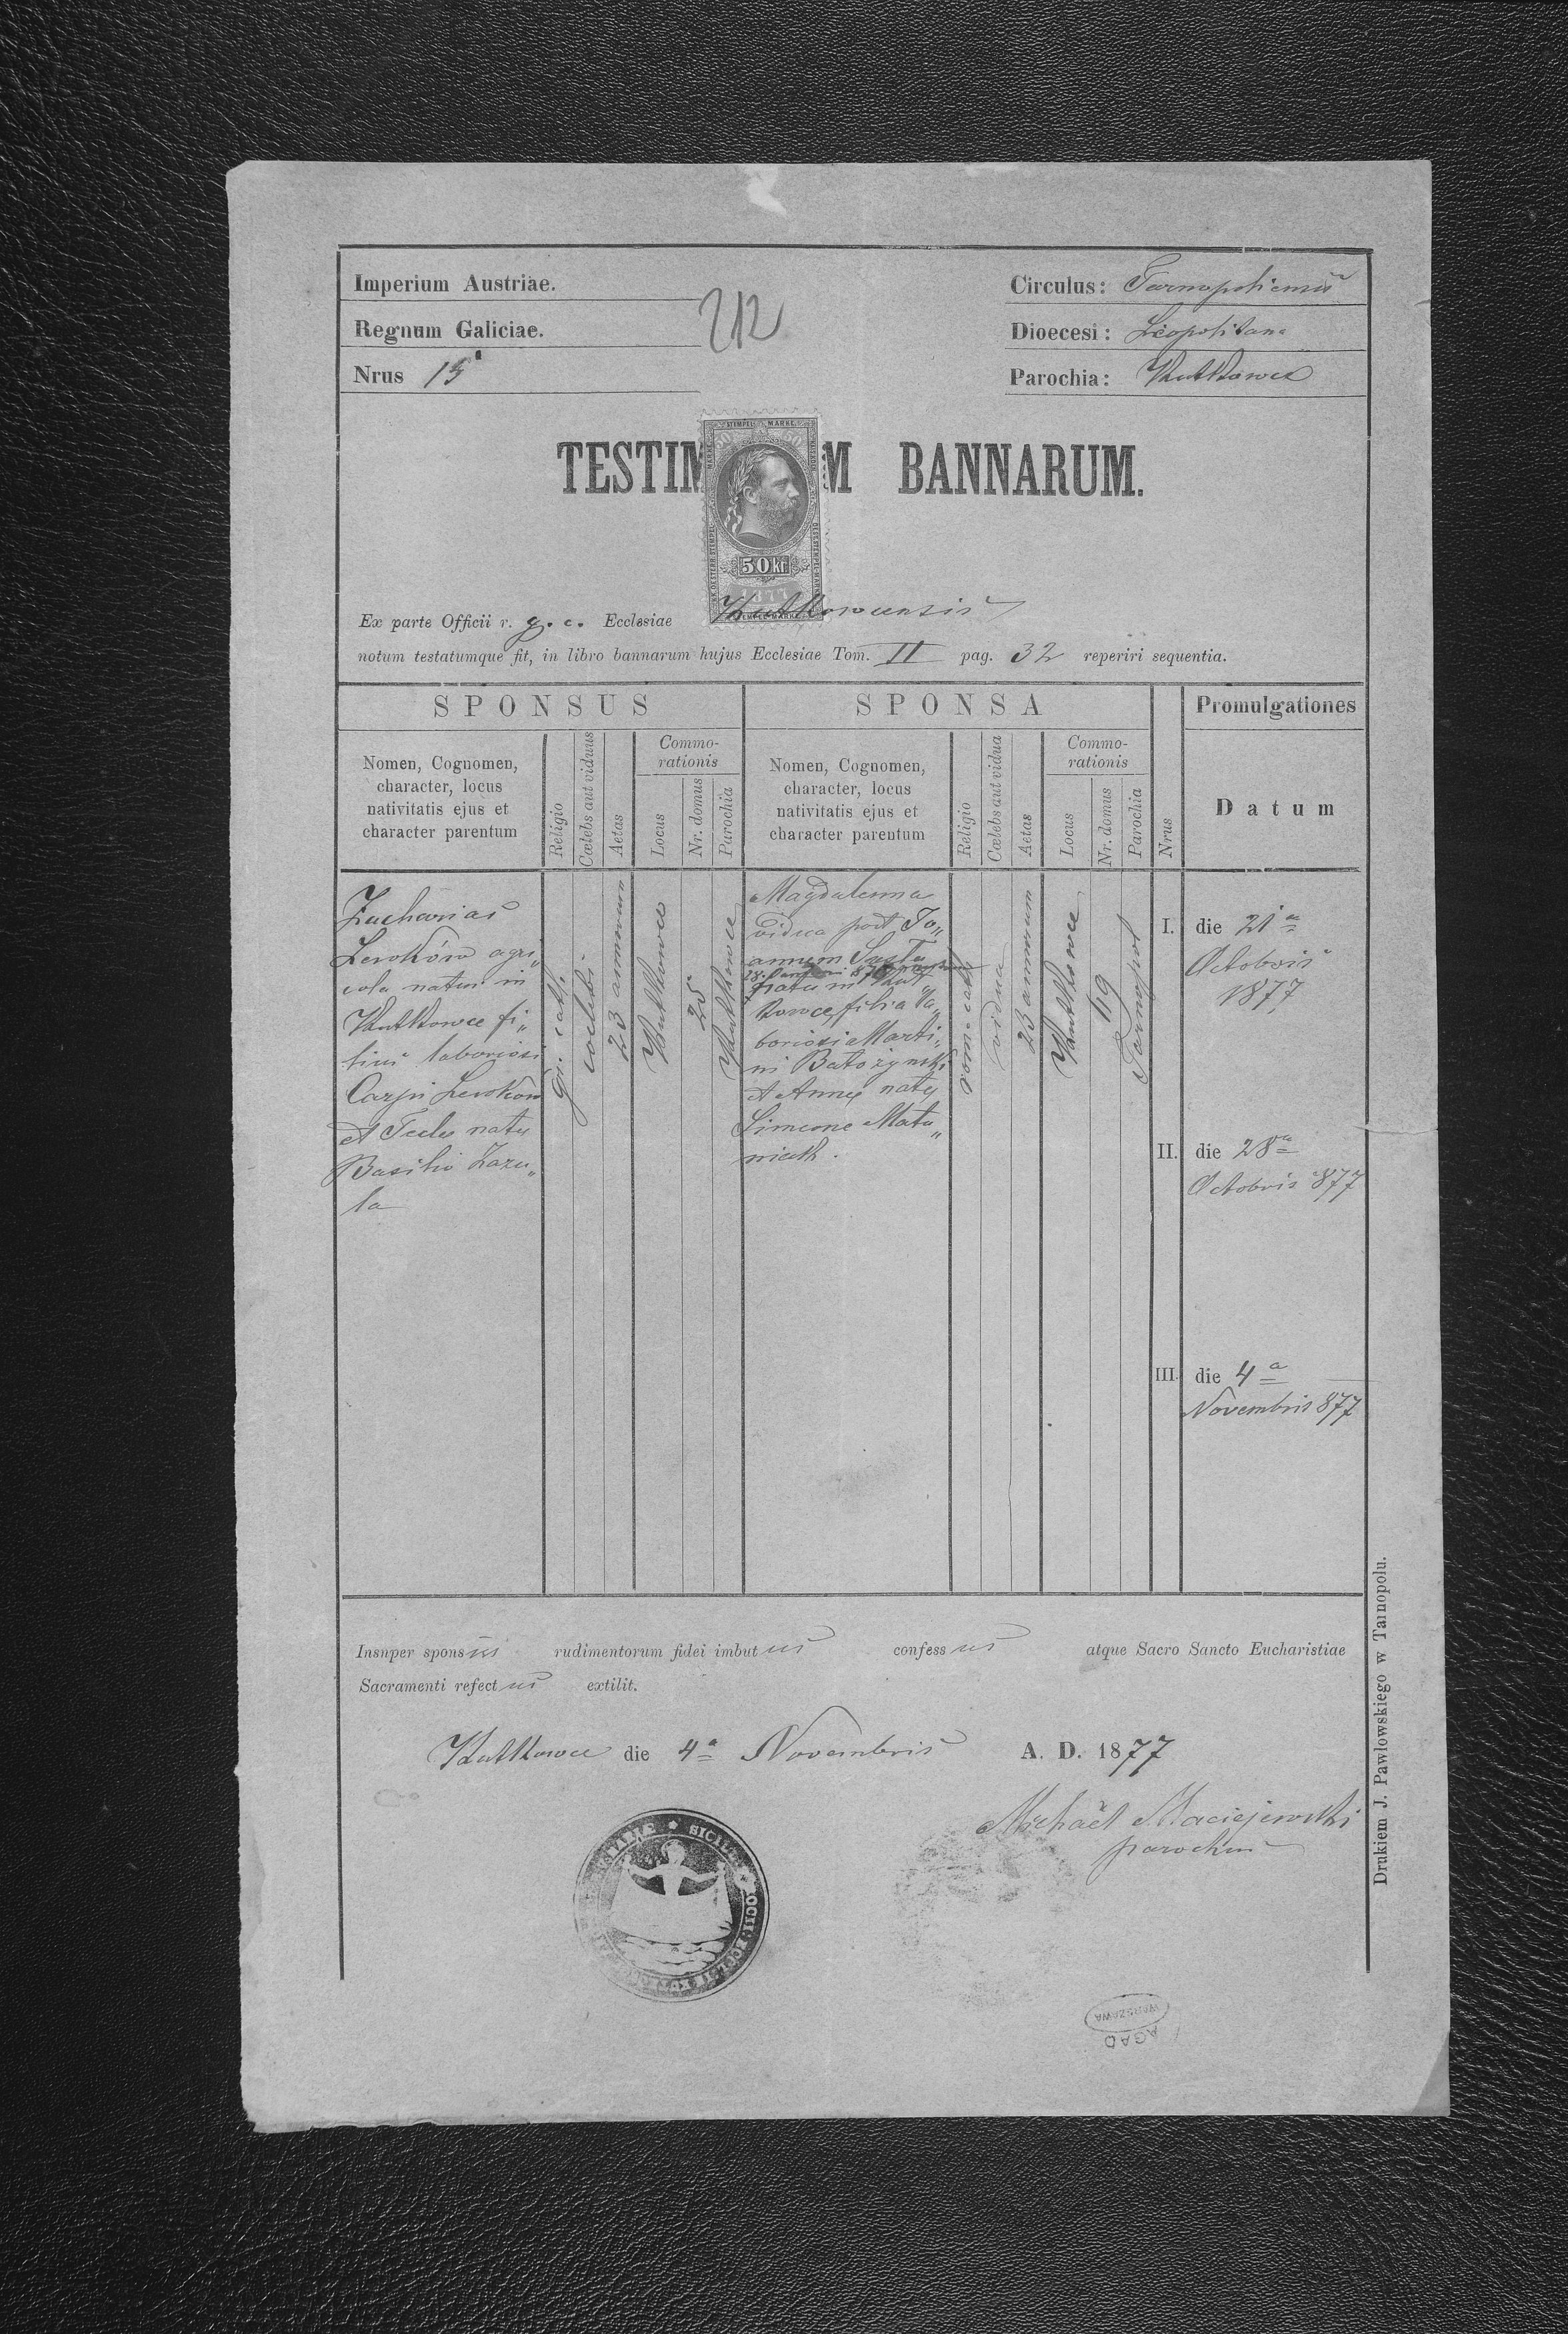 Imperium Austriae.
Regnum Galiciae.
Nrus 15
212
Circulus: Tarnopoliensis
Dioecesi: Leopolitana
Parochia: Kutkowce
STEMPEL MARKE
TESTIM M BANNARUM.
50 kr
1877
Ex parte Officii r. g. c. Ecclesiae Kutkowcensis
notum testatumque fit, in libro bannarum hujus Ecclesiae Tom. II pag. 32 reperiri sequentia.
SPONSUS
SPONSA
Promulgationes
Nomen, Cognomen,
character, locus
nativitatis ejus et
character parentum
Religio
Cœlebs aut viduus
Aetas
Commo-
rationis
Locus
Nr. domus
Parochia
Nomen, Cognomen,
character, locus
nativitatis ejus et
character parentum
Religio
Cœlebs aut vidua
Aetas
Commo-
rationis
Locus
Nr. domus
Parochia
Nrus
Datum
Zacharias
Lewków agri„
cola natus in
Kutkowce fi„
lius laboriosi
Carpi Lewków
et Teclæ natæ
Basilio Zazu„
la
gr. cath.
coelebs
23 annorum
Kutkowce
25
Kutkowce
Magdalenna
vidua post Jo„
annem
natu in Kut
kowce, filia la„
boriosi Marti„
ni Batożynski
et Annæ natæ
Simeone Matu„
rom. cath
vidua
23 annorum
Kutkowce
119
Tarnopol
I. die 21a
Octobris
1877
II. die 28a
Octobris 877
III. die 4a
Novembris 877
Insnper sponsus rudimentorum fidei imbutus confessus atque Sacro Sancto Eucharistiae
Sacramenti refectus extilit.
Kutkowce die 4a Novembris A. D. 1877
Michaël Maciejewski
parochus
Drukiem J. Pawlowskiego w Tarnopolu.
AGAD
WARSZAWA